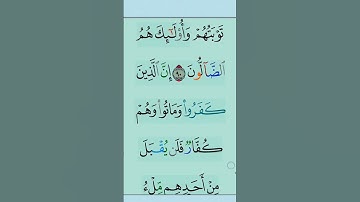 تَوۡبَتُهُمۡ وَأُوْلَٰٓئِكَ هُمُ
ٱلضَّآلُّونَ ٩٠ إِنَّ ٱلَّذِينَ
كَفَرُواْ وَمَاتُواْ وَهُمۡ
كُفَّارٞ فَلَن يُقۡبَلَ
مِنۡ أَحَدِهِم مِّلۡءُ